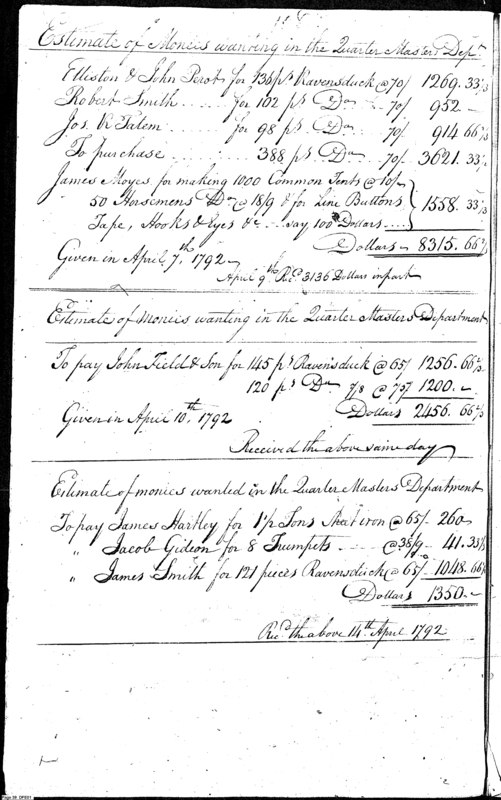 Estimate of Monies wanting in the Quarter Masters Dept.
Elliston & John Perot for 136 ps. Ravensduck @ 70/ 1269.33 1/3
Robert Smith for 102 ps Do 70/ 952 -
Jos. R Tatem for 98 ps Do 70/ 914 66 2/3
To purchase 388 ps Do 70/ 3621.33 1/3
James Moyes for making 1000 Common Tents @ 10/
50 Horsemens Do @ 18/9 & for Line Buttons 1558.33 1/3
Tape, Hooks & Eyes &c say 100 Dollars
Dollars 8315.66 2/3
Given in April 7th. 1792
April 9th Recd 3136 Dollars in part
Estimate of monies wanting in the Quarter Masters Department
To pay John Field & Son for 145 ps Ravensduck @ 65/ 1256.66 2/3
120 ps Do 7/8 @ 75/ 1200.-
Dollars 2456.66 2/3
Given in April 10th 1792
Received the above same day
Estimate of monies wanted in the Quarter Masters Department
To pay James Hartley for Tons Sheat iron @ 65/ 260
" Jacob Gideon for 8 Trumpets @ 38/9 41.33 1/3
" James Smith for 121 pieces Ravensduck @ 65/ 1048.66 2/3
Dollars 1350.-
Recd the above 14th April 1792